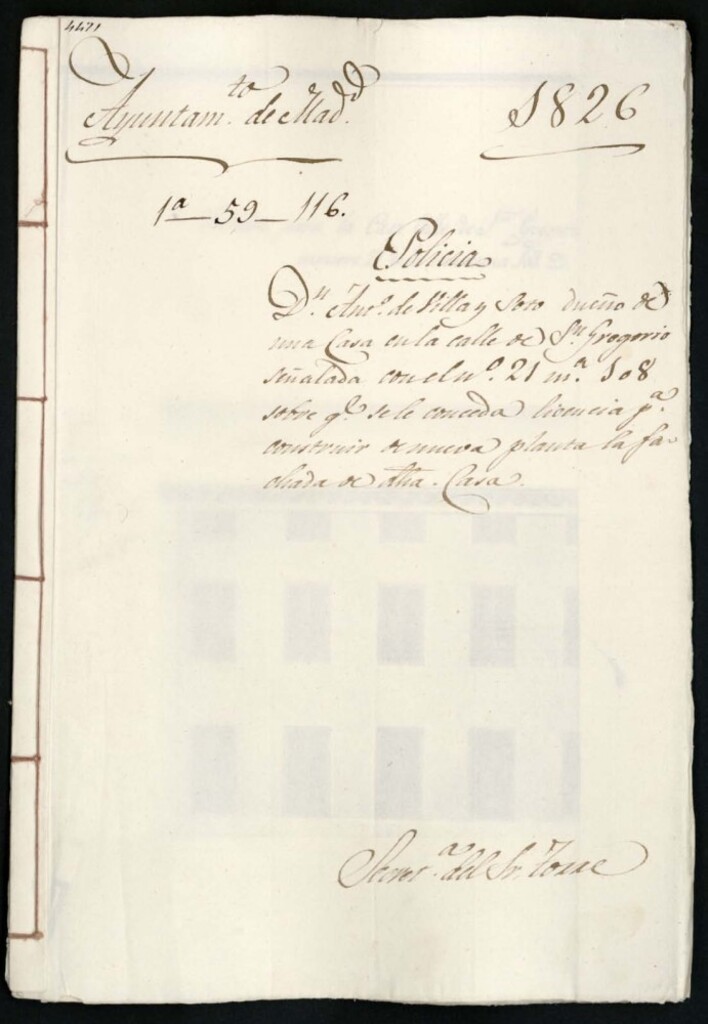 Ayuntam.to de Mad.d
1826
1a—59—116.
Policia
D.n Ant.o de Villa y Soto dueño de
una Casa en la calle de S.n Gregorio
señalada con el n.o 21 m.a 108
sobre q.e se le conceda licencia p.a
construir de nueva planta la fa-
chada de dha. Casa.
Secret.a del Sr.